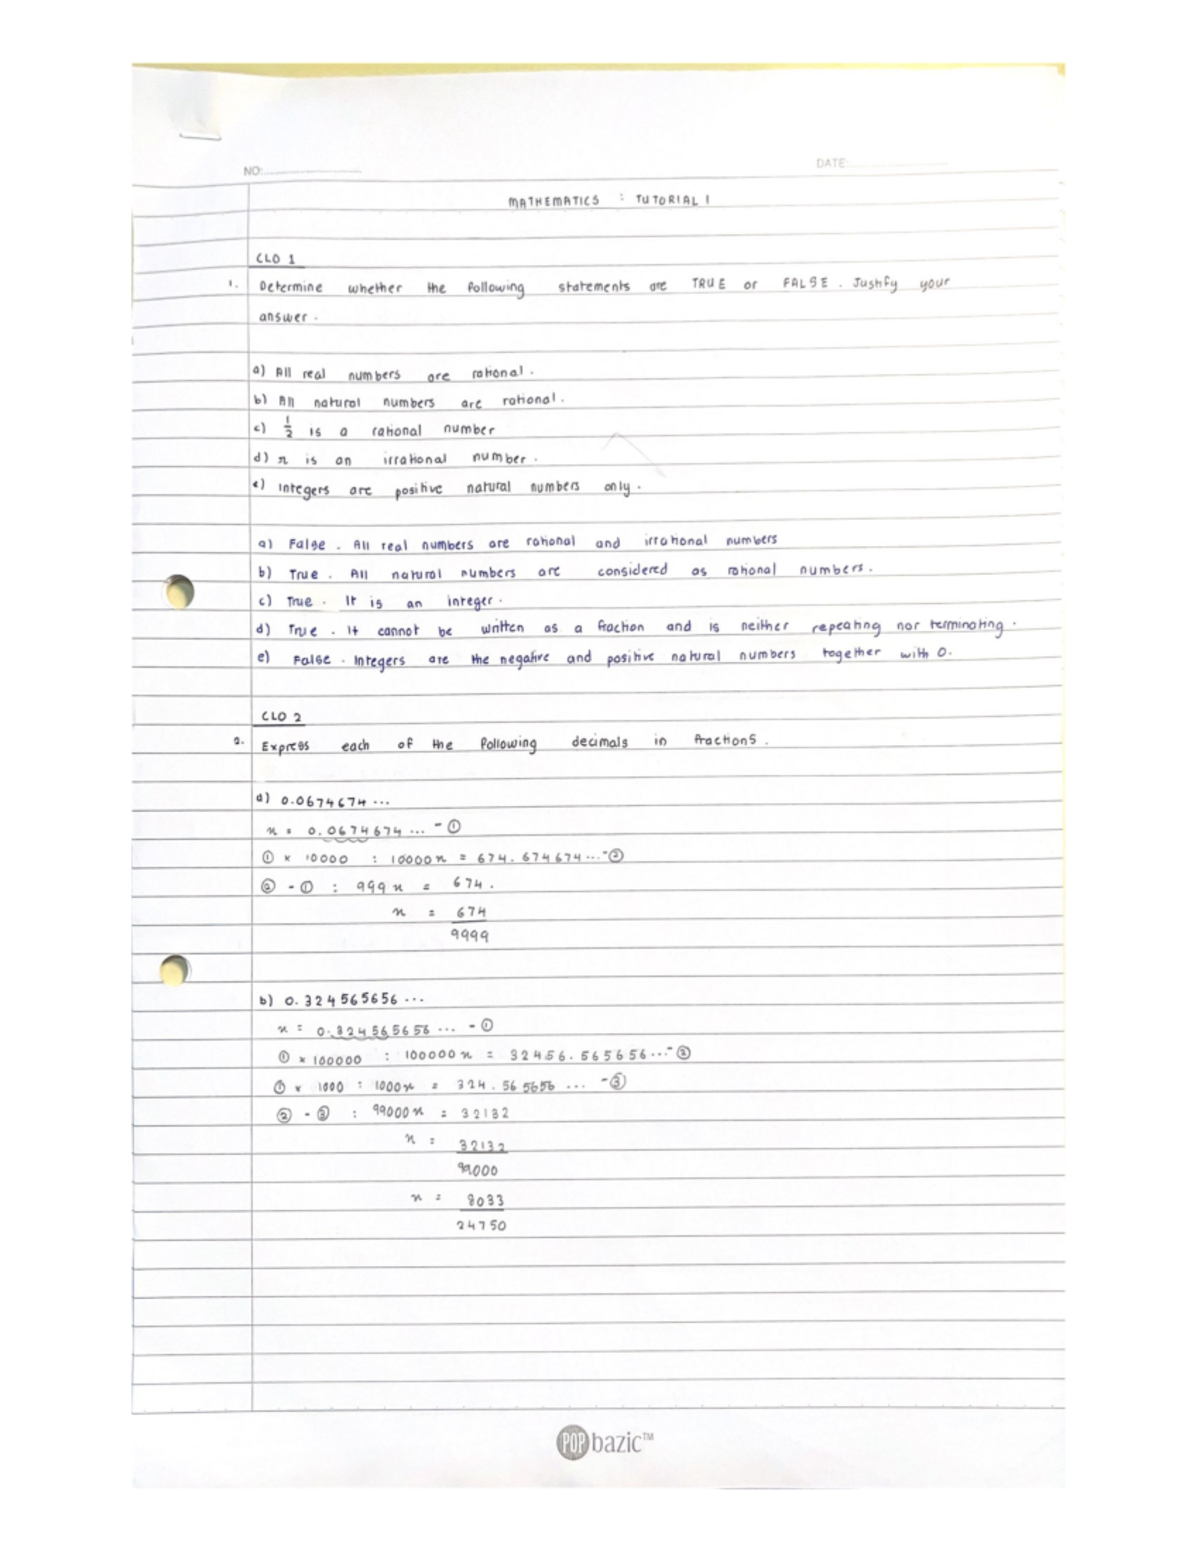 NO:
DATE:
MATHEMATICS : TUTORIAL 1
CLO 1
1. Determine whether the following statements are TRUE or FALSE. Justify your
answer.
a) All real numbers are rational.
b) All natural numbers are rational.
c) 1/2 is a rational number
d) π is an irrational number.
e) Integers are positive natural numbers only.
a) False. All real numbers are rational and irrational numbers
b) True. All natural numbers are considered as rational numbers.
c) True. It is an integer.
d) True. It cannot be written as a fraction and is neither repeating nor terminating.
e) False. Integers are the negative and positive natural numbers together with 0.
CLO 2
2. Express each of the following decimals in fractions.
a) 0.0674674...
x = 0.0674674... - ①
① × 10000 : 10000x = 674.674674... - ②
② - ① : 999x = 674.
x = 674
9999
b) 0.324565656...
x = 0.324565656... - ①
① × 100000 : 100000x = 32456.565656... - ②
① × 1000 : 1000x = 324.565656... - ③
② - ③ : 99000x = 32132
x = 32132
99000
x = 8033
24750
POP bazic™